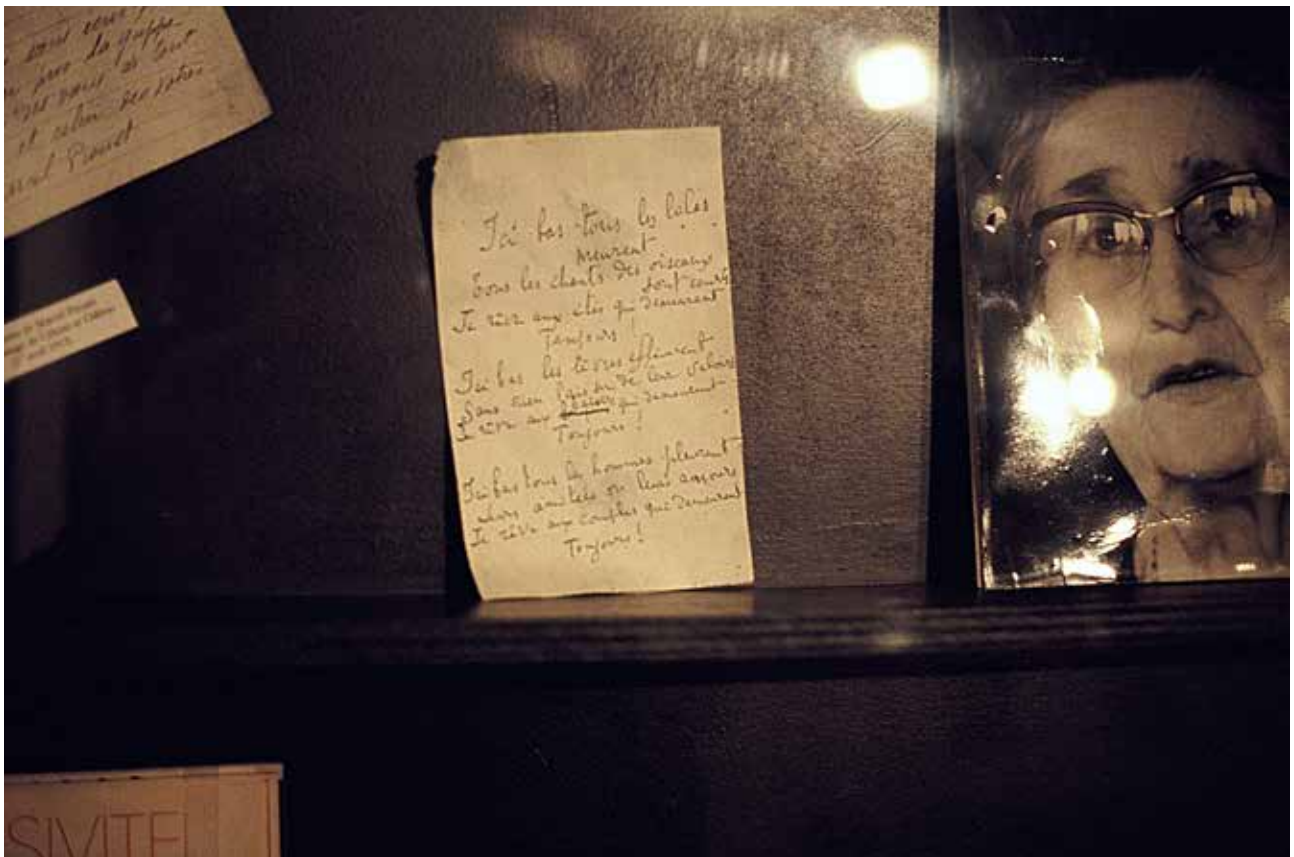 la grippe
et celui des vôtres
Proust
de Marcel Proust
Ici bas tous les lilas
meurent
Tous les chants des oiseaux
sont courts
Je rêve aux étés qui demeurent
Toujours !
Ici bas les lèvres effleurent
Sans rien laisser de leur velours
Je rêve aux qui demeurent
Toujours !
Ici bas tous les hommes pleurent
Leurs amitiés ou leurs amours
Je rêve aux couples qui demeurent
Toujours !
SIVITE